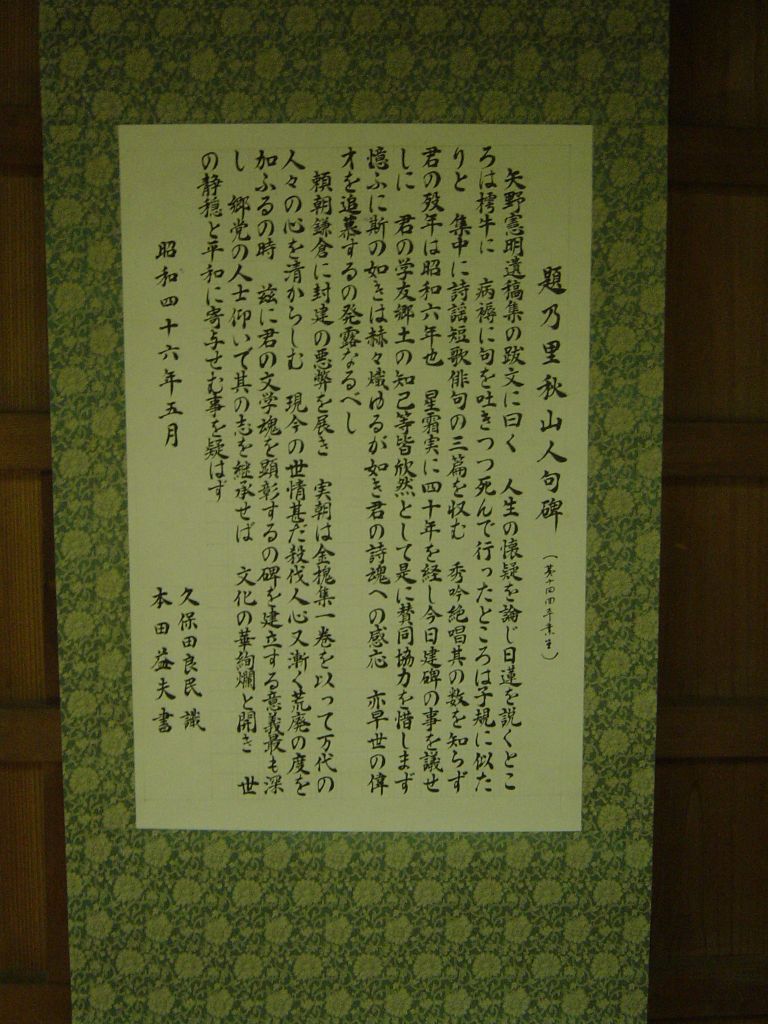 題乃里秋山人句碑
矢野憲明遺稿集の跋文に曰く 人生の懐疑を論じ日蓮を説くとこ
ろは樗牛に 病褥に句を吐きつつ死んで行ったところは子規に似た
りと 集中に詩謡短歌俳句の三篇を収む 秀吟絶唱其の数を知らず
君の歿年は昭和六年也 星霜実に四十年を経し今日建碑の事を議せ
しに 君の学友郷土の知己等皆欣然として是に賛同協力を惜しまず
憶ふに斯の如きは赫々熾ゆるが如き君の詩魂への感応 亦早世の偉
才を追慕するの発露なるべし
頼朝鎌倉に封建の悪弊を展き 実朝は金槐集一巻を以って万代の
人々の心を清からしむ 現今の世情甚だ殺伐人心又漸く荒廃の度を
加ふるの時 茲に君の文学魂を顕彰するの碑を建立する意義最も深
し 郷党の人士仰いで其の志を継承せば 文化の華絢爛と開き 世
の静穏と平和に寄与せむ事を疑はず
昭和四十六年五月
久保田良民 識
本田益夫 書